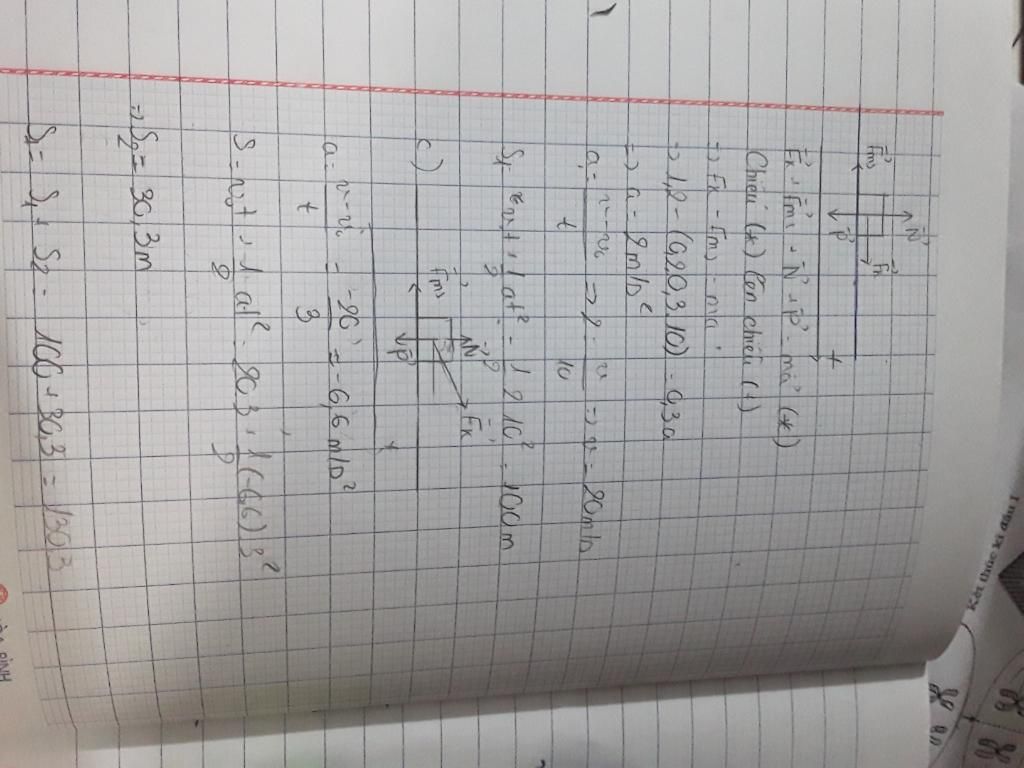 Fms N Fk P +
Fk + Fms + N + P = ma (*)
Chiếu (*) lên chiều (+)
=> Fk - Fms = ma
=> 1,2 - (0,2.0,3.10) = 0,3a
=> a = 2m/s²
a = v - v₀ / t => 2 = v / 10 => v = 20m/s
S₁ = v₀t + 1/2 at² = 1/2 2 10² = 100m
c) Fms N P Fk +
a = v - v₀ / t = -20 / 3 = -6,6 m/s²
S = v₀t + 1/2 at² = 20.3 + 1/2 (-6,6) 3²
=> S₂ = 30,3m
S = S₁ + S₂ = 100 + 30,3 = 130,3
Kết thúc kì đấu 1